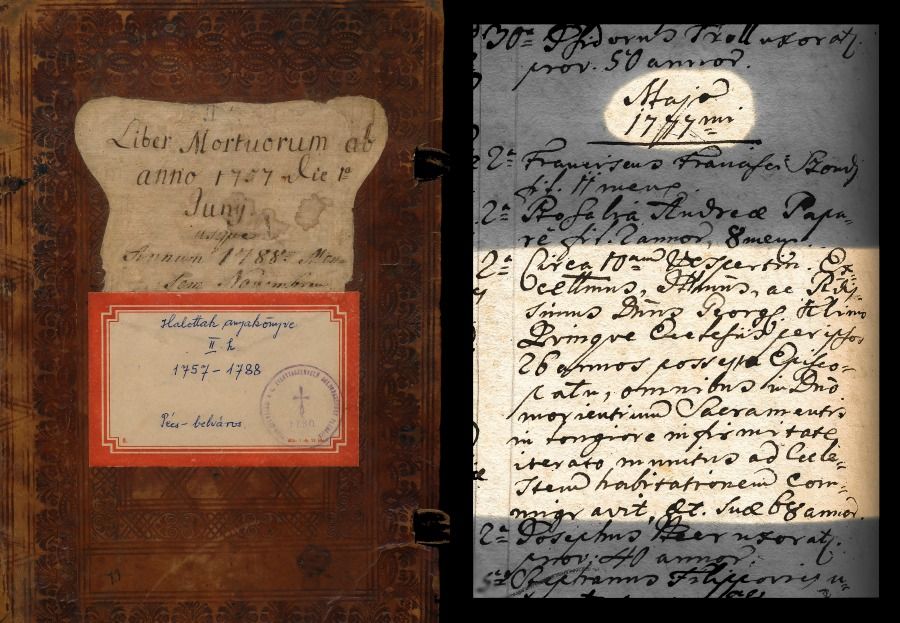 Liber Mortuorum ab
anno 1757 Die 1a
Junij
usque
Annum 1788um Men
sem Novembrem
Halottak anyakönyve
II. k.
1757-1788
Pécs-belváros
30a Isidorus Troll uxorat.
prov. 50 annor.
Majo
1777mi
2a Franciscus Francisci
fil. 11 mens.
2a Rosalia Andreæ Papa-
re fil. 2 annor. 8 mens.
2a Circa 10am Vespertin. Ex-
cellmus, Illmus, ac
simus Dnus Georg. Klimo
Quinque Ecclesiis per ipsos
26 annos possesso Episco-
patu, omnibus in Dno
morientium Sacramentis
in longiore infirmitate
iterato munitus ad Cœle-
stem habitationem Com-
migravit, æt. suæ 68 annor.
2a Josephus uxorat.
prov. 40 annor.
Stephanus